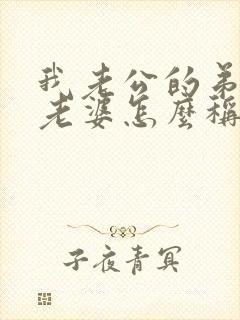 我老公的弟
老婆怎麼稱
子夜青冥